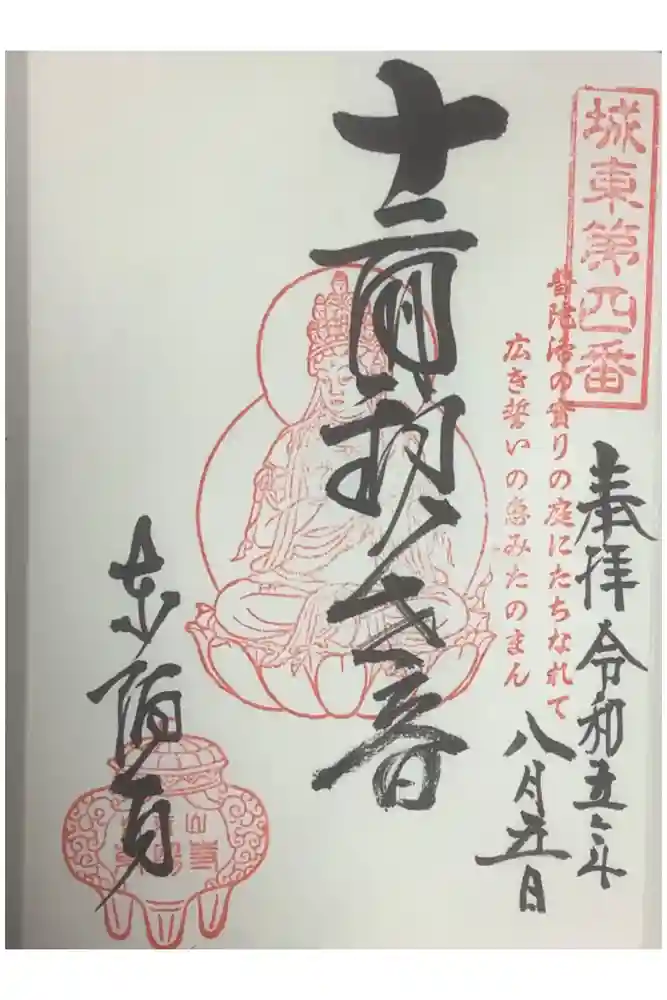 城東第四番
奉拝 令和五年
八月五日
普陀洛の實りの庭にたちなれて
広き誓いの恵みたのまん
十一面観世音